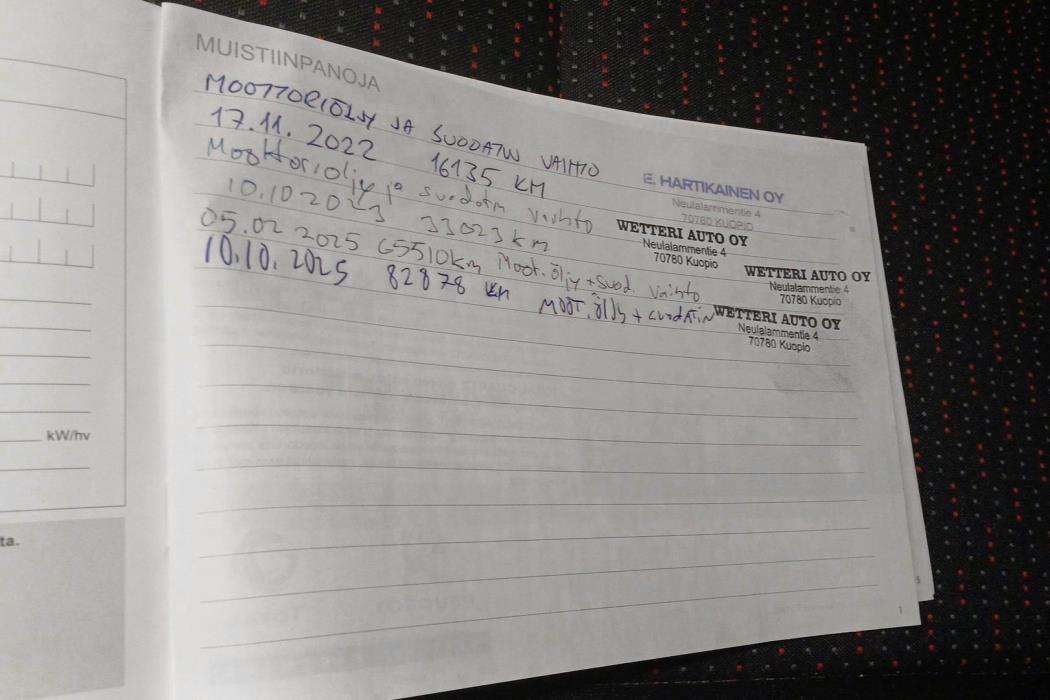 MUISTIINPANOJA
MOOTTORIÖLJY JA SUODATIN VAIHTO
17.11.2022 16135 KM
E. HARTIKAINEN OY
Neulalammentie 4
70780 KUOPIO
Moottoriöljy ja suodatin vaihto
10.10 2023 33023 km
WETTERI AUTO OY
Neulalammentie 4
70780 Kuopio
05.02 2025 65510km Moot.öljy+suod. vaihto
WETTERI AUTO OY
Neulalammentie 4
70780 Kuopio
10.10.2025 82878 km MOOT.öljy + suodatin
WETTERI AUTO OY
Neulalammentie 4
70780 Kuopio
kW/hv
ta.
5
1